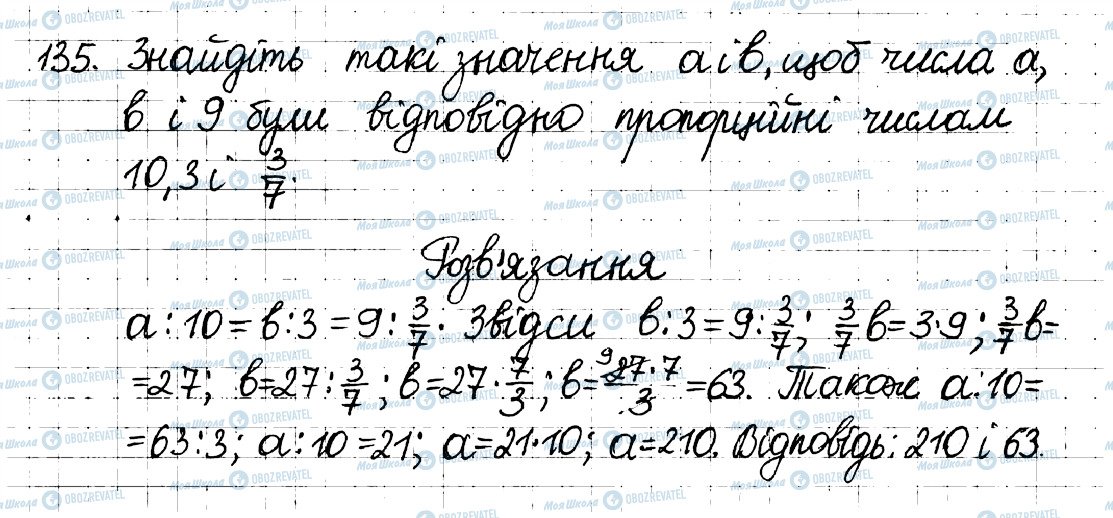 135. Знайдіть такі значення а і в, щоб числа а,
в і 9 були відповідно пропорційні числам
10, 3 і 3/7.
Розв'язання
а : 10 = в : 3 = 9 : 3/7. Звідси в : 3 = 9 : 3/7; 3/7 в = 3·9; 3/7 в =
= 27; в = 27 : 3/7; в = 27 · 7/3; в = 9 27·7/3 = 63. Також а : 10 =
= 63 : 3; а : 10 = 21; а = 21·10; а = 210. Відповідь: 210 і 63.